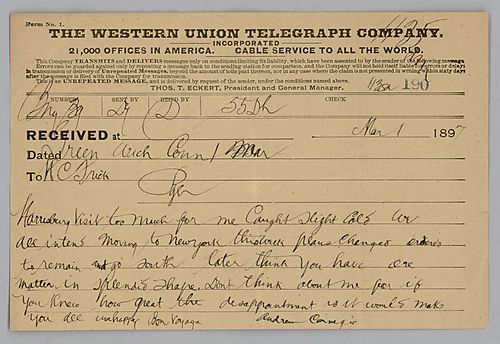 Form No. 1.
THE WESTERN UNION TELEGRAPH COMPANY.
INCORPORATED
21,000 OFFICES IN AMERICA. CABLE SERVICE TO ALL THE WORLD.
This Company TRANSMITS and DELIVERS messages only on conditions limiting its liability, which have been assented to by the sender of the following message.
Errors can be guarded against only by repeating a message back to the sending station for comparison, and the Company will not hold itself liable for errors or delays
in transmission or delivery of Unrepeated Messages, beyond the amount of tolls paid thereon, nor in any case where the claim is not presented in writing within sixty days
after the message is filed with the Company for transmission.
This is an UNREPEATED MESSAGE, and is delivered by request of the sender, under the conditions named above.
THOS. T. ECKERT, President and General Manager.
190
NUMBER SENT BY REC'D BY CHECK
55 Dh
RECEIVED at Mar 1 1897
Dated Green wich Conn 1 Mar
To H C Frick
Pgh
Harrisburg Visit too much for me Caught slight Cold We
all intend moving to Newyork thisweek plans changed orders
to remain go south later think you have are
matter in splendid shape. Dont think about me for if
you knew how great the disappointment is it would make
you all unhappy Bon Voyage Andrew Carnegie